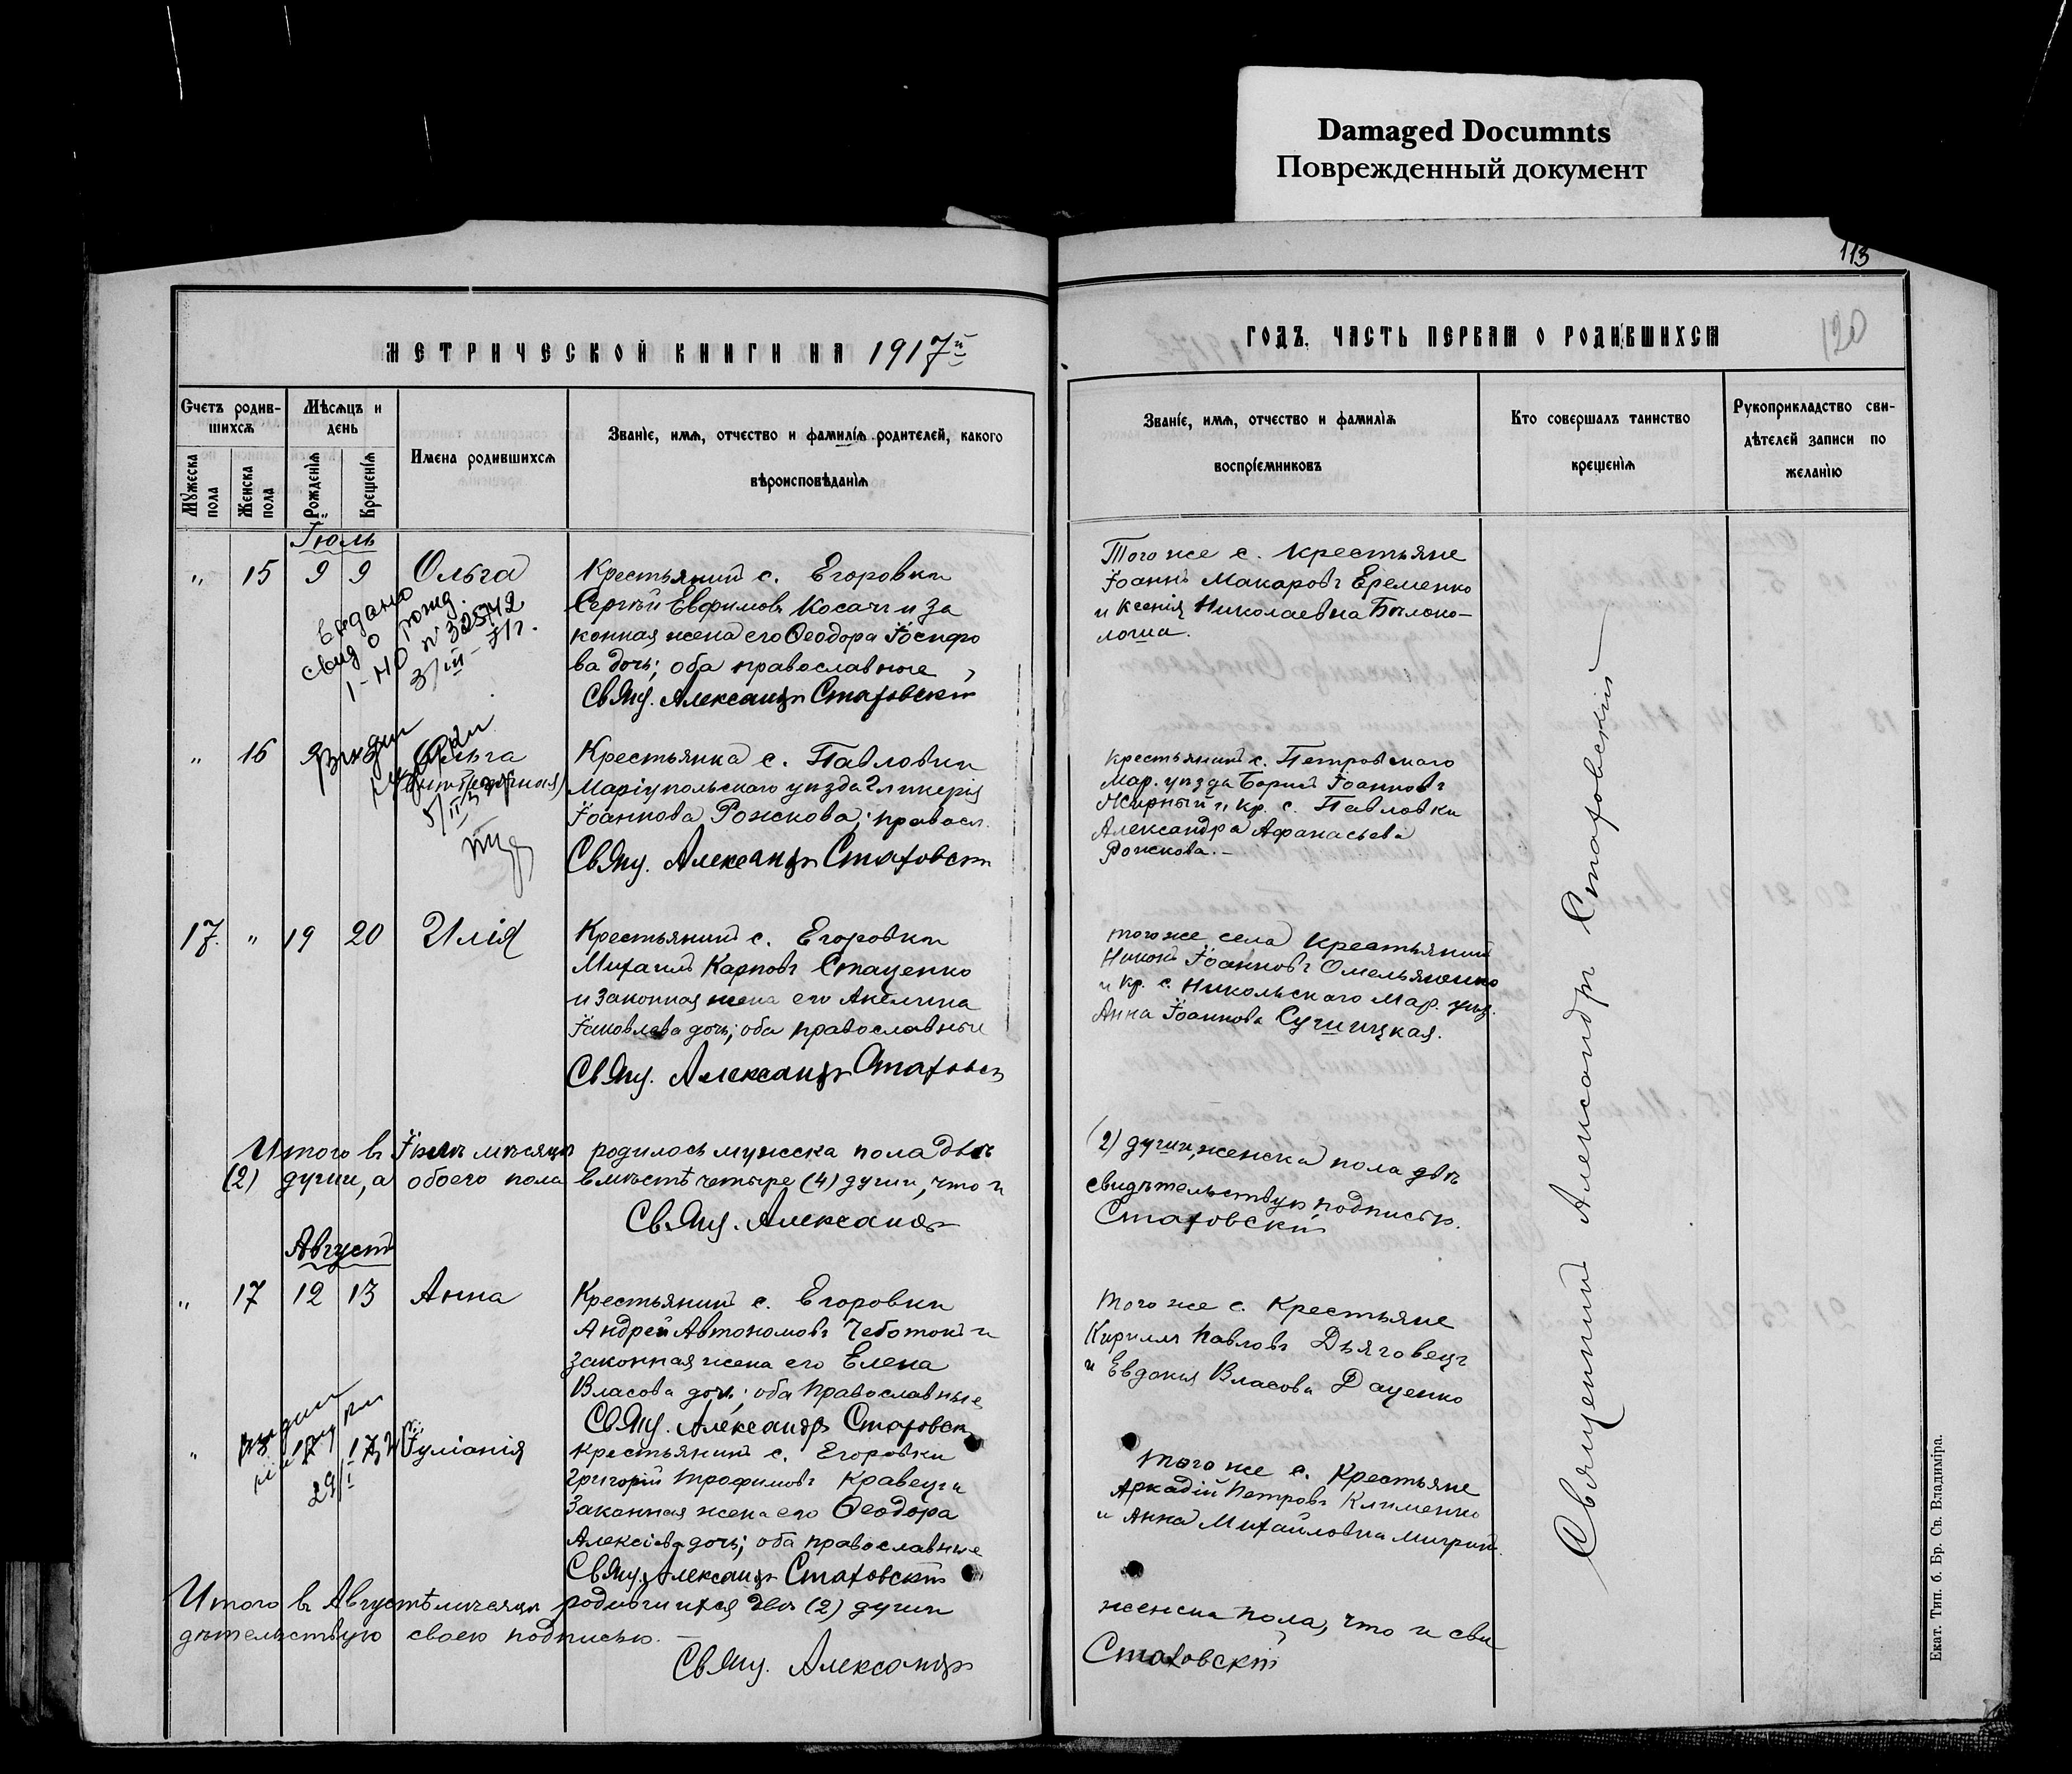 Damaged Documnts
Поврежденный документ
113
120
МЕТРИЧЕСКОЙ КНИГИ НА 1917й
ГОДЪ, ЧАСТЬ ПЕРВАЯ О РОДИВШИХСЯ
Счетъ родив-
шихсѧ
Мѣсѧцъ и
день
Мꙋжеска
пола
Женска
пола
Рожденїѧ
Крещенїѧ
Имена родившихсѧ
Званїе, имѧ, отчество и фамилїѧ родителей, какого
вѣроисповѣданїѧ
Званїе, имѧ, отчество и фамилїѧ
воспрїемниковъ
Кто совершалъ таинство
крещенїѧ
Рукоприкладство сви-
дѣтелей записи по
желанїю
Іюль
" 15 9 9 Ольга
Крестьянинъ с. Егоровки
Сергѣй Евфимовъ Косачъ и за
конная жена его Ѳеодора Іосифо
ва дочь; оба православные
Свящ. Александръ Стаховскій
Того же с. крестьяне
Іоаннъ Макаровъ Еременко
и Ксенія Николаевна Бѣлоко-
лоша.
Выдано
свид о рожд.
" 16 Ольга
Крестьянка с. Павловки
Маріупольскаго уѣзда Гликерія
Іоаннова Рожкова; правосл.
Свящ. Александръ Стаховскій
крестьянинъ с. Петровскаго
Мар. уѣзда Борисъ Іоанновъ
Жирный и кр. с. Павловки
Александра Афанасьева
Рожкова. –
17. " 19 20 Илія
Крестьянинъ с. Егоровки
Михаилъ Карповъ Стаценко
и законная жена его Акилина
Іаковлева дочь; оба православные
Свящ. Александръ Стаховск
того же села крестьянинъ
Іоанновъ Омельяненко
и кр. с. Никольскаго Мар. уѣз.
Анна Іоаннова Сушицкая.
Итого въ Іюлѣ мѣсяцѣ родилось мужеска пола двѣ
(2) души, женска пола двѣ
(2) души, а обоего пола вмѣстѣ четыре (4) души, что и
свидѣтельствую подписью.
Свящ. Александръ
Стаховскій
Августъ
" 17 12 13 Анна
Крестьянинъ с. Егоровки
Андрей Автономовъ Чеботокъ и
законная жена его Елена
Власова дочь; оба Православные
Свящ. Александръ Стаховск
Того же с. Крестьяне
Кириллъ Павловъ Дьяговецъ
и Евдокія Власова Даценко
" 17 17 Іуліанія
Крестьянинъ с. Егоровки
Григорій Трофимовъ Кравецъ и
Законная жена его Ѳеодора
Алексіева дочь; оба православные
Свящ. Александръ Стаховскій
Того же с. Крестьяне
Аркадій Петровъ Клименко
и Анна Михайловна
Итого въ Августѣ мѣсяцѣ родившихся двѣ (2) души
женска пола, что и сви
дѣтельствую своею подписью. –
Свящ. Александръ
Стаховскій
Священникъ Александръ Стаховскій
Екат. Тип. б. Бр. Св. Владиміра.